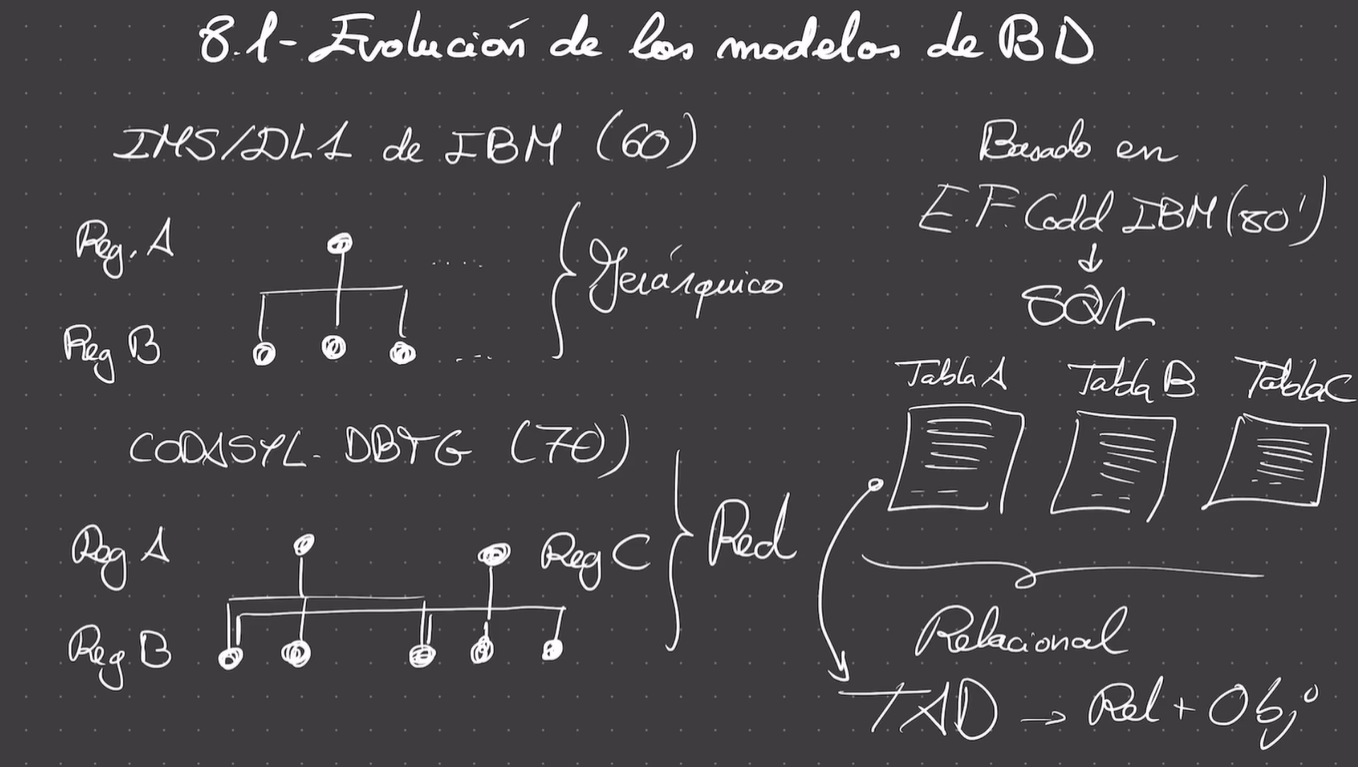 8.1- Evolución de los modelos de BD
IMS/DL1 de IBM (60)
Reg. A
.....
Reg B
...
Jerárquico
CODASYL-DBTG (70)
Reg A
Reg C
Reg B
Red
Basado en
E.F. Codd IBM (80')
↓
SQL
Tabla A Tabla B Tabla C
Relacional
TAD → Rel + Obj°